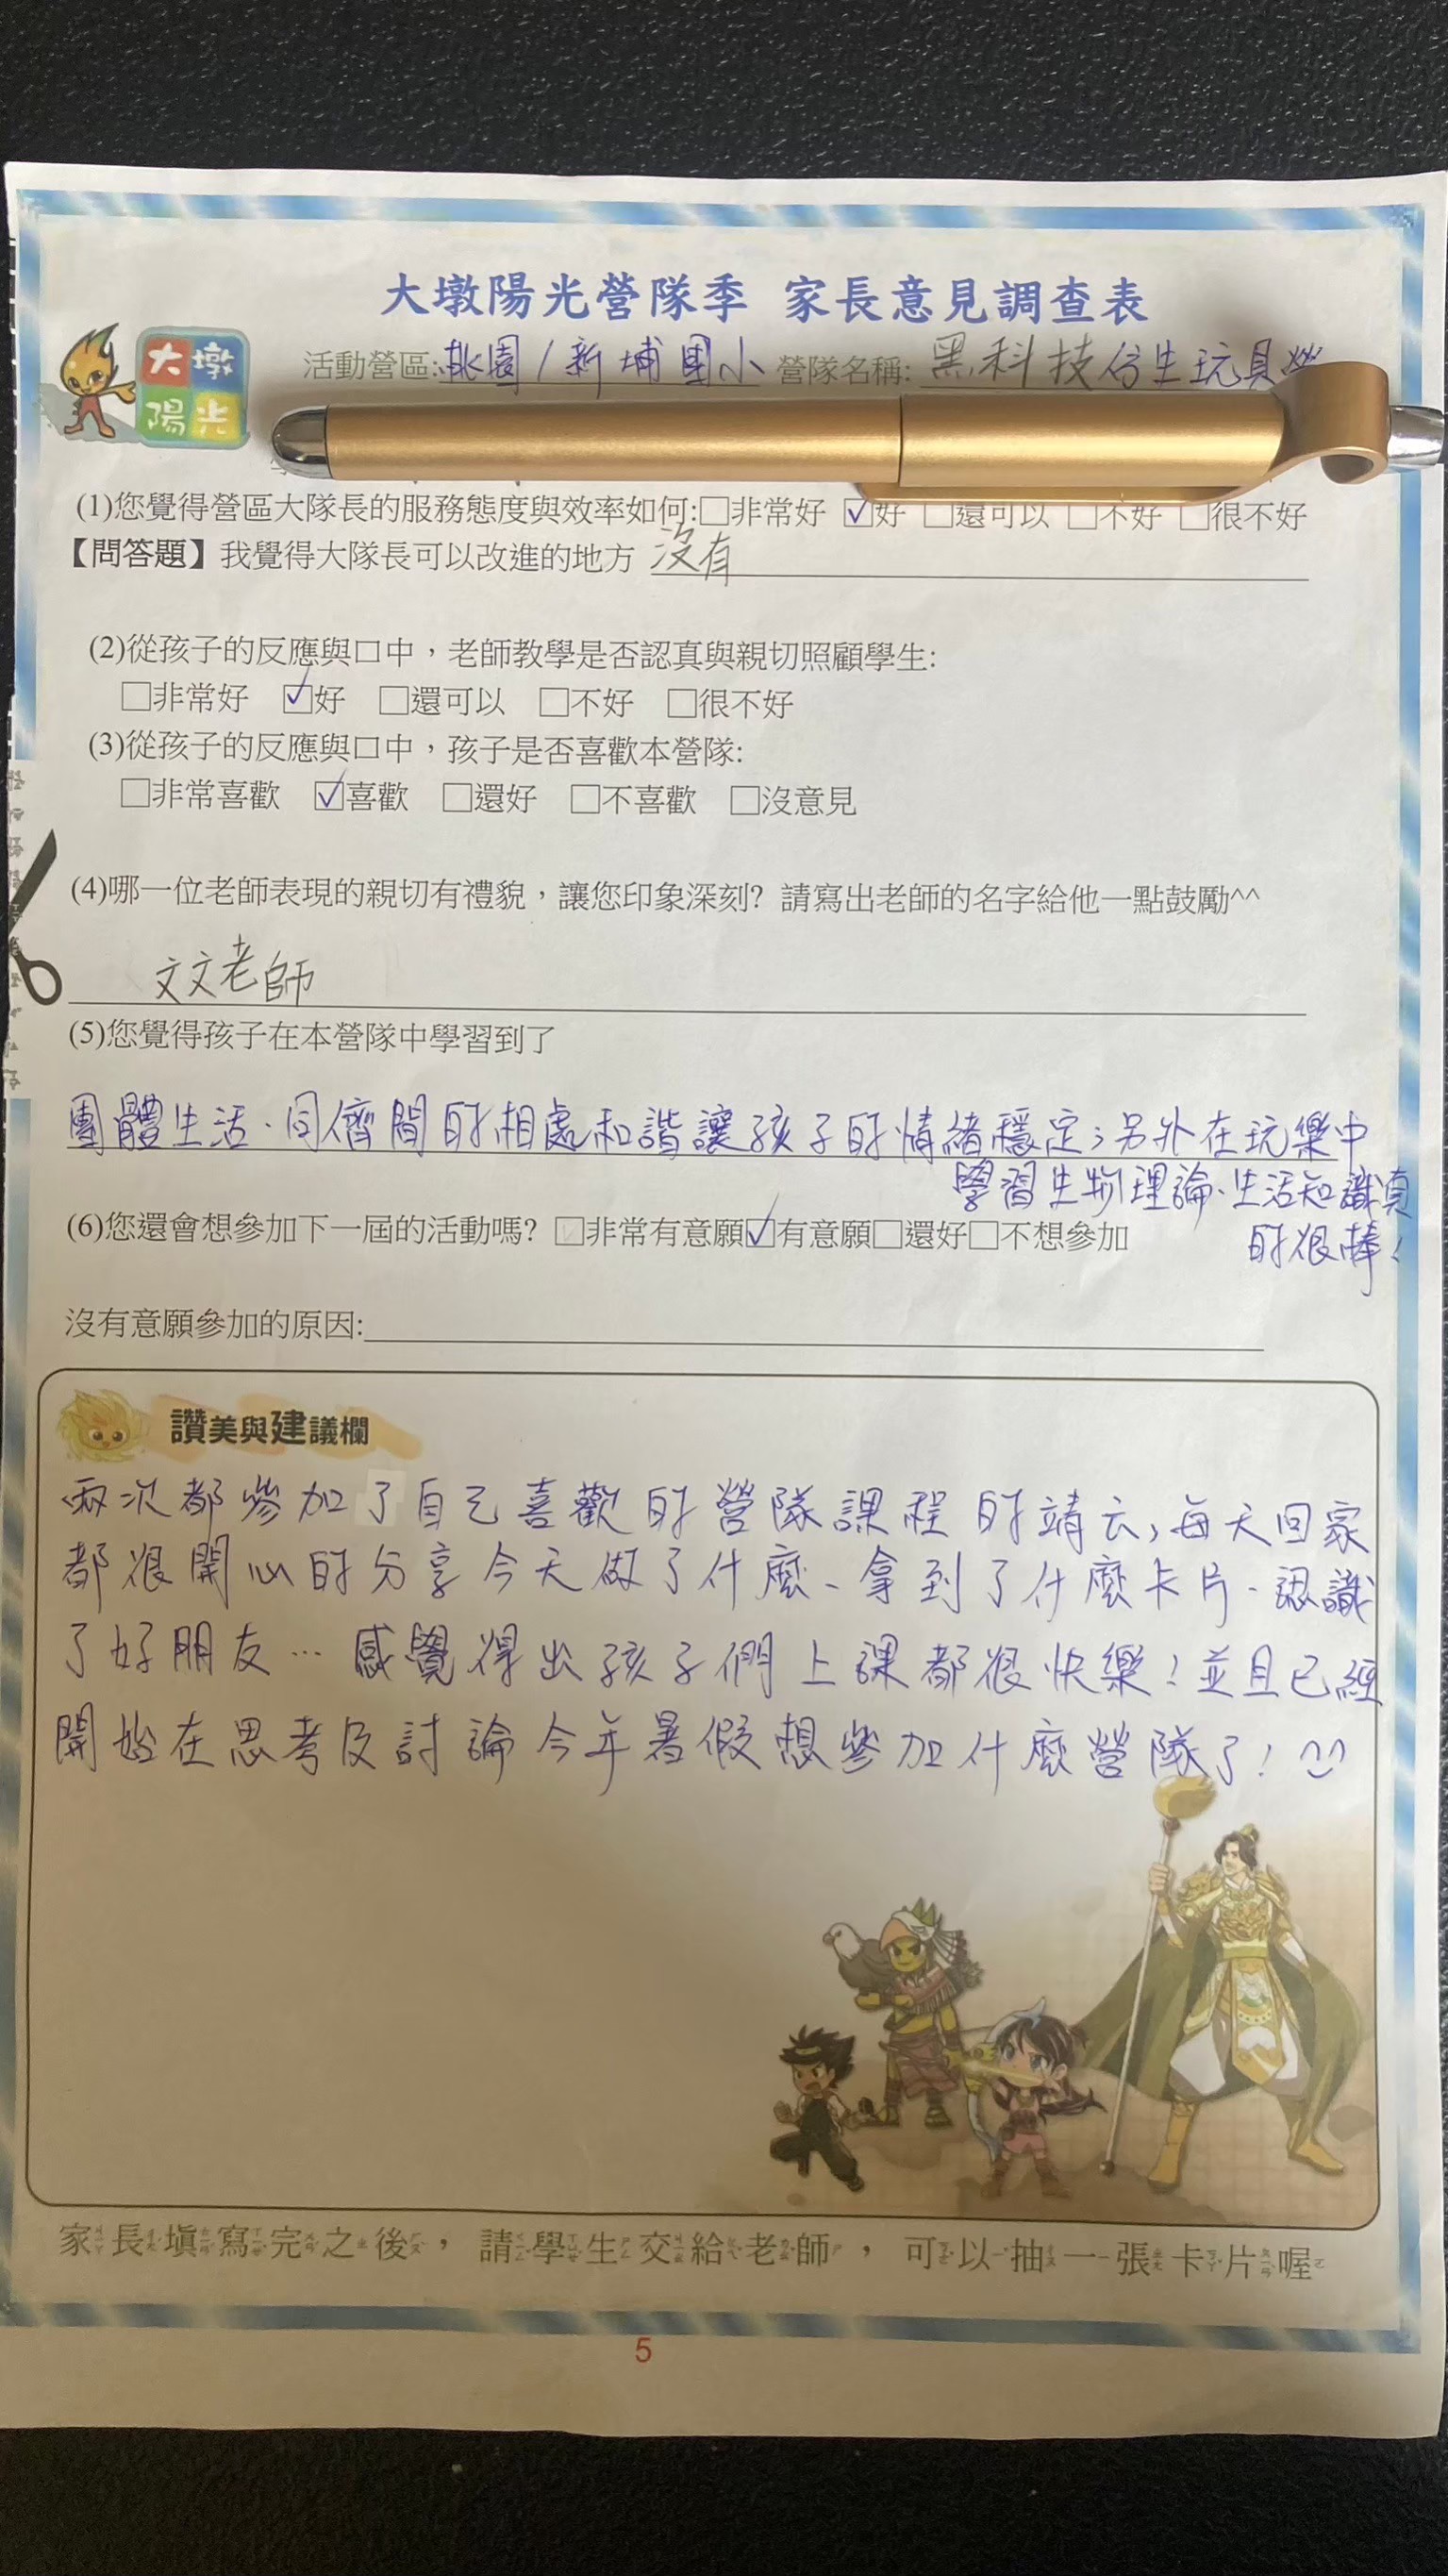 大墩陽光營隊季 家長意見調查表
大墩
陽光
活動營區:桃園/新埔國小 營隊名稱:黑科技仿生玩具營
(1)您覺得營區大隊長的服務態度與效率如何:□非常好 ☑好 □還可以 □不好 □很不好
【問答題】我覺得大隊長可以改進的地方 沒有
(2)從孩子的反應與口中，老師教學是否認真與親切照顧學生:
□非常好 ☑好 □還可以 □不好 □很不好
(3)從孩子的反應與口中，孩子是否喜歡本營隊:
□非常喜歡 ☑喜歡 □還好 □不喜歡 □沒意見
(4)哪一位老師表現的親切有禮貌，讓您印象深刻? 請寫出老師的名字給他一點鼓勵^^
文文老師
(5)您覺得孩子在本營隊中學習到了
團體生活、同儕間的相處和諧讓孩子的情緒穩定；另外在玩樂中
學習生物理論、生活知識真
的很棒!
(6)您還會想參加下一屆的活動嗎? □非常有意願☑有意願□還好□不想參加
沒有意願參加的原因:
讚美與建議欄
兩次都參加了自己喜歡的營隊課程的靖云,每天回家
都很開心的分享今天做了什麼、拿到了什麼卡片、認識
了好朋友…感覺得出孩子們上課都很快樂!並且已經
開始在思考及討論今年暑假想參加什麼營隊了! ^^
家長填寫完之後，請學生交給老師，可以抽一張卡片喔
5